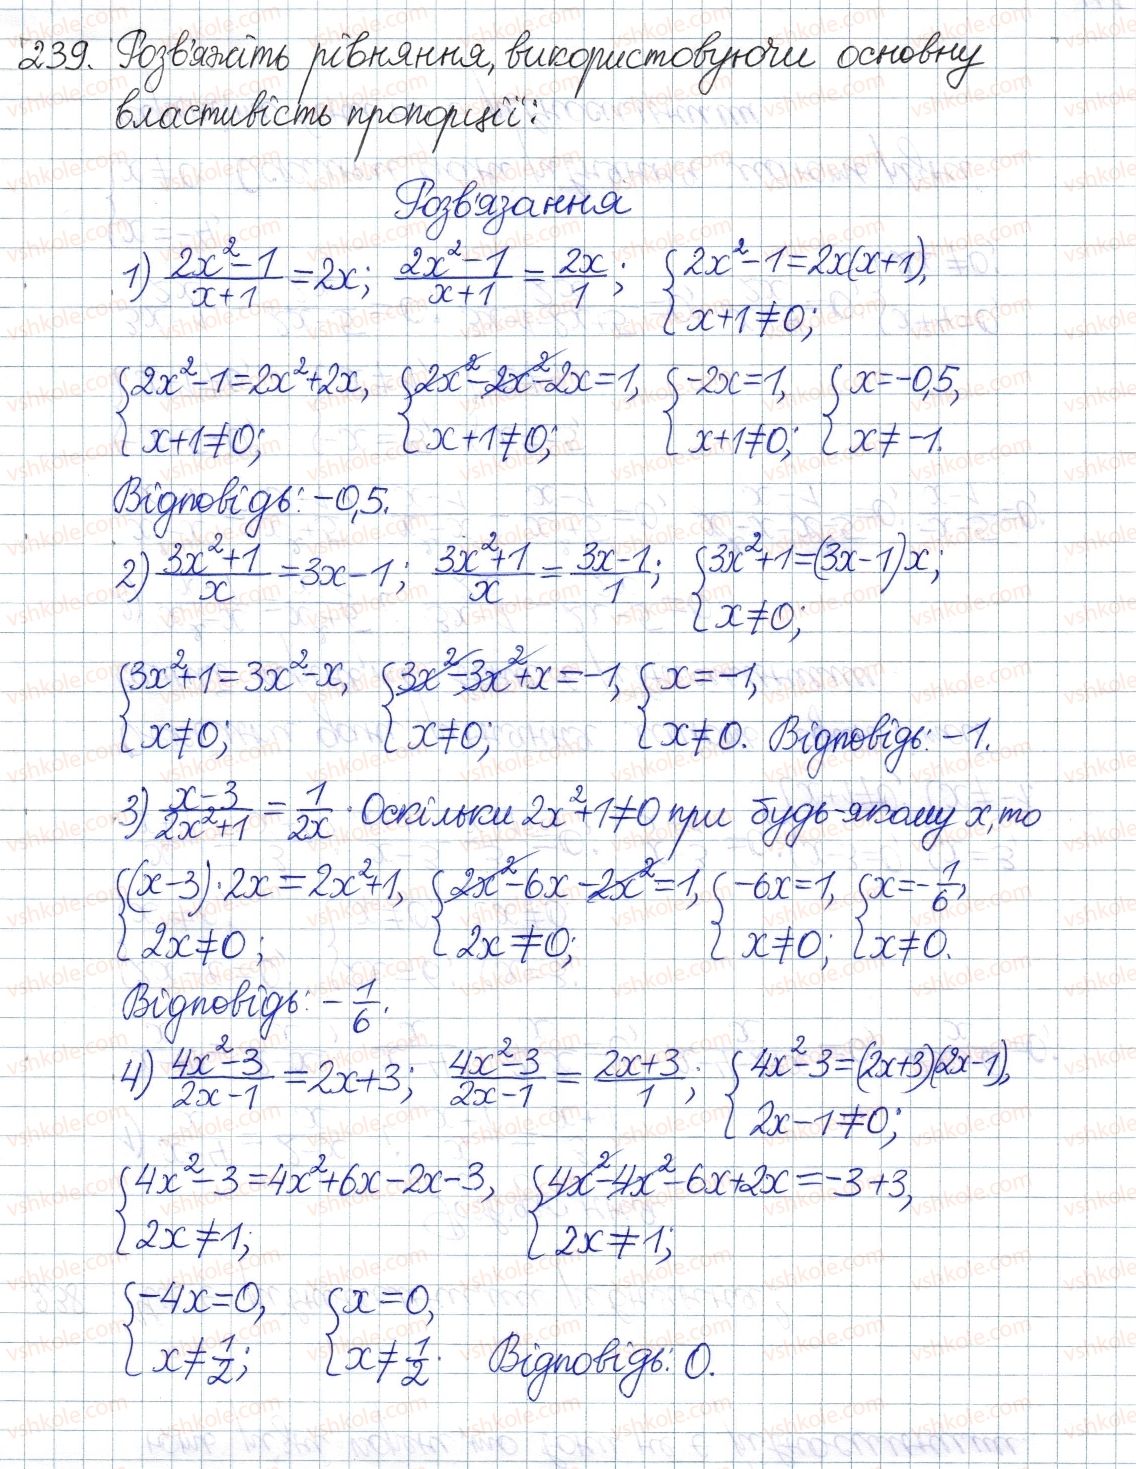 239. Розв'яжіть рівняння, використовуючи основну
властивість пропорції:
Розв'язання
1) \frac{2x^2-1}{x+1}=2x; \frac{2x^2-1}{x+1}=\frac{2x}{1}; {2x^2-1=2x(x+1), x+1≠0;
{2x^2-1=2x^2+2x, x+1≠0; {2x^2-2x^2-2x=1, x+1≠0; {-2x=1, x+1≠0; {x=-0,5, x≠-1.
Відповідь: -0,5.
2) \frac{3x^2+1}{x}=3x-1; \frac{3x^2+1}{x}=\frac{3x-1}{1}; {3x^2+1=(3x-1)x; x≠0;
{3x^2+1=3x^2-x, x≠0; {3x^2-3x^2+x=-1, x≠0; {x=-1, x≠0. Відповідь: -1.
3) \frac{x-3}{2x^2+1}=\frac{1}{2x}. Оскільки 2x^2+1≠0 при будь-якому x, то
{(x-3)·2x=2x^2+1, 2x≠0; {2x^2-6x-2x^2=1, 2x≠0; {-6x=1, x≠0; {x=-\frac{1}{6}, x≠0.
Відповідь: -\frac{1}{6}.
4) \frac{4x^2-3}{2x-1}=2x+3; \frac{4x^2-3}{2x-1}=\frac{2x+3}{1}; {4x^2-3=(2x+3)(2x-1), 2x-1≠0;
{4x^2-3=4x^2+6x-2x-3, 2x≠1; {4x^2-4x^2-6x+2x=-3+3, 2x≠1;
{-4x=0, x≠\frac{1}{2}; {x=0, x≠\frac{1}{2}. Відповідь: 0.
vshkole.com